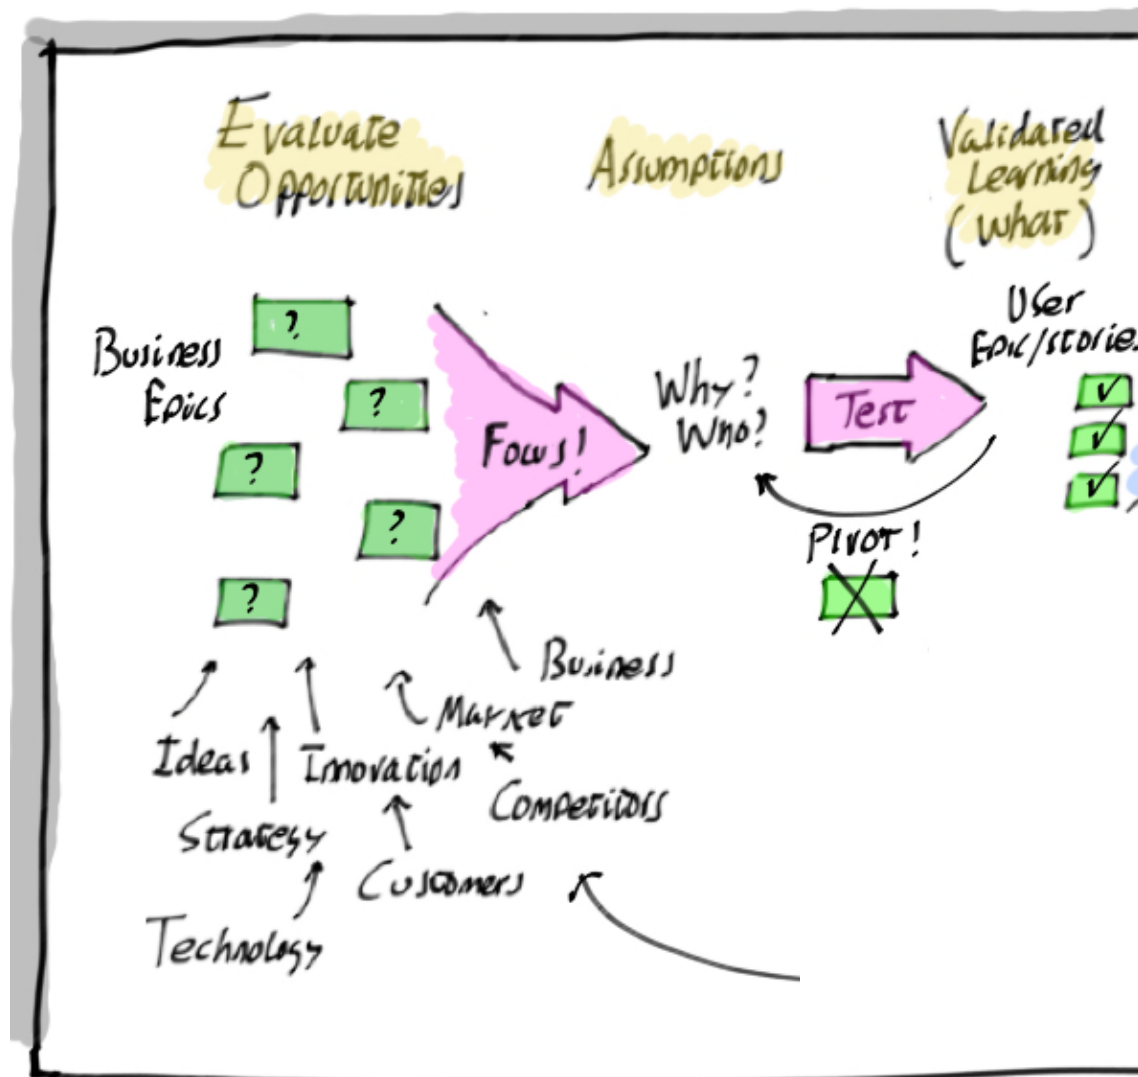 Evaluate
Opportunities
Assumptions
Validated
Learning
(What)
Business
Epics
?
?
?
?
?
Focus!
Why?
Who?
Test
User
Epic/stories
Pivot!
Business
Market
Ideas
Innovation
Competitors
Strategy
Customers
Technology